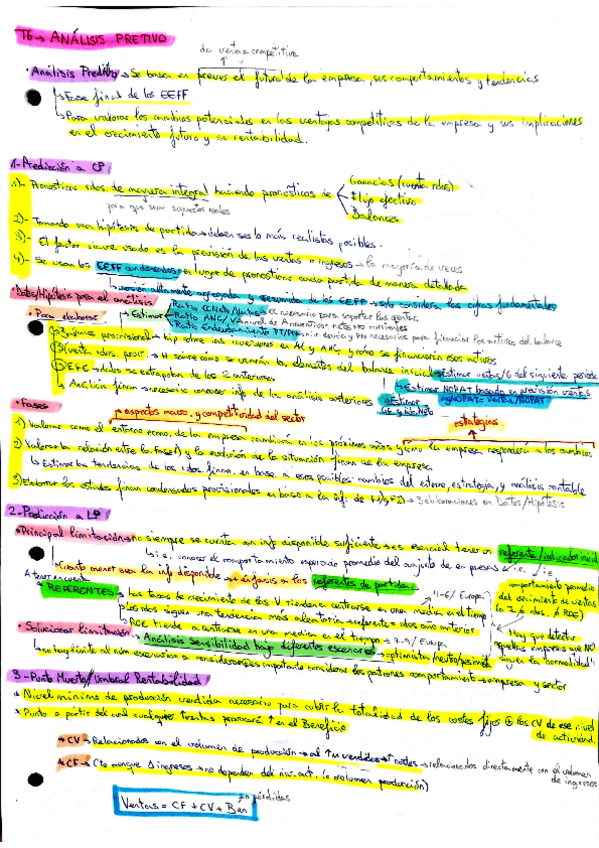 T6 → ANÁLISIS PRETIVO
da ventaja competitiva
· Análisis Preditivo → Se basa en prever el futuro de la empresa, sus comportamientos y tendencias
↳ Fase final de los EEFF
↳ Para valorar los cambios potenciales en las ventajas competitivas de la empresa y sus implicaciones
en el crecimiento futuro y su rentabilidad.
1.- Predicción a CP
1)- Pronosticar rdos. de manera integral haciendo pronósticos de
Ganancias (cuenta rdos)
Flujo efectivo
Balances
para que sean supuestos reales
2)- Tomando una hipótesis de partida → deben ser lo más realistas posibles.
3)- El factor clave usado es la previsión de las ventas o ingresos → la mayoría de veces
4)- Se usan los EEFF condensados en lugar de pronosticar cada partida de manera detallada
versión altamente agregada y resumida de los EEFF → solo considera las cifras fundamentales
· Datos/Hipótesis para el análisis
· Para elaborar
Estimar
Ratio CCNeto/Ventas → CC necesario para soportar las ventas
Ratio ANC/
Ratio Endeudamiento PT/PN
necesarios para financiar los activos del balance
1) Balance provisional → hip sobre las inversiones en AC y ANC y como se financiarán esos activos
2) Cuenta rdos. prov. → H sobre como se verán los elementos del balance inicial → Estimar ventas/G del siguiente periodo
Estimar NOPAT basada en previsión ventas
3) EFE → datos se extrapolan de los 2 anteriores
mgNOPAT = Ventas/NOPAT
· Análisis finan → necesario conocer info de los análisis anteriores
Estimar
· Fases
→ aspectos macro. y competitividad del sector
estrategias
1) Valorar como el entorno econó. de la empresa cambiará en los próximos años y como la empresa responderá a los cambios
2) Valorar la relación entre la fase 1) y la evolución de la situación finan de la empresa
↳ Estimar las tendencias de los rdos. finan. en base a esos posibles cambios del entorno, estrategia, y análisis contable
3) Elaborar los estados finan condensados provisionales en base a la info. de F1) y F2) → 3 elaboraciones en Datos/Hipótesis
2.- Predicción a LP
· Principal limitación → no siempre se cuenta con inf disponible suficiente → es esencial tener un referente/indicador inicial
↳ i.e. conocer el comportamiento esperado promedio del conjunto de empresas
↳ Cuanto menor sea la inf disponible → + énfasis a los referentes de partida
A tener en cuenta
→ REFERENTES
↳ Las tasas de crecimiento de las V tienden a centrarse en una media en el tiempo
↳ Los rdos siguen una tendencia más aleatoria → referente = dos año anterior
↳ ROE tiende a centrarse en una media en el tiempo → 7-9% Europa
comportamiento promedio
del crecimiento de ventas
Hay que detectar
aquellas empresas que NO
siguen la "normalidad"
· Solucionar limitación → Análisis sensibilidad bajo diferentes escenarios → optimista/neutro/pesimista
↳ no hay límite al núm escenarios a considerar → es importante considerar los patrones comportamient. → empresa y sector
3.- Punto Muerto/Umbral Rentabilidad
· Nivel mínimo de producción vendida necesario para cubrir la totalidad de los costes fijos ⊕ los CV de ese nivel
de actividad.
· Punto a partir del cual cualquier ↑ventas provocará ↑ en el Beneficio
→ CV → Relacionados con el volumen de producción → al ↑ un vendidas → ↑ costes → relacionados directamente con el volumen
de ingresos
→ CF → Cte aunque Δ ingresos → no dependen del niv. act. (o volumen producción)
no pérdidas
Ventas = CF + CV + Ben